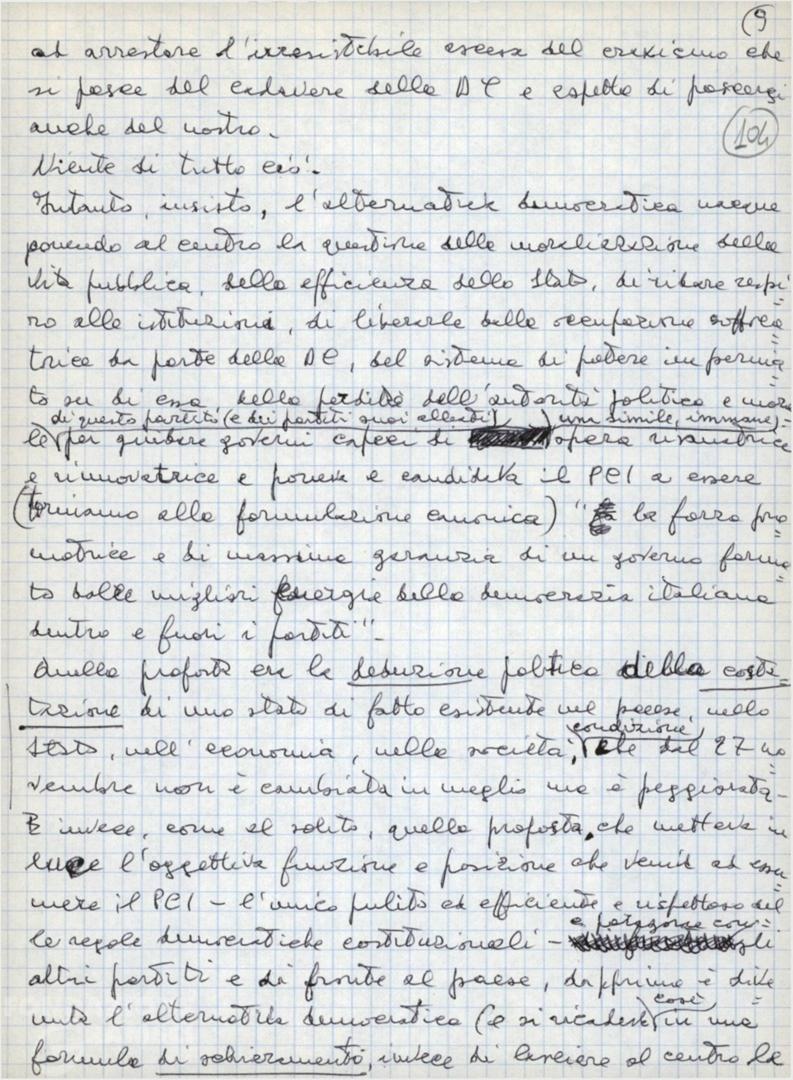 (9
ad arrestare l'irresistibile ascesa del craxismo che
si pasce del cadavere della DC e aspetta di pascersi
anche del nostro.
104
Niente di tutto ciò.
Intanto, insisto, l'alternativa democratica nacque
ponendo al centro la questione della moralizzazione della
vita pubblica, della efficienza dello Stato, di ridare respi=
ro alle istituzioni, di liberarle dalla occupazione soffoca=
trice da parte della DC, del sistema di potere impernia=
to su di essa, della perdita dell'autorità politica e mora=
di questo partito (e dei partiti suoi alleati) una simile, immane,
le per guidare governi capaci di opera risanatrice
e rinnovatrice e poneva e candidava il PCI a essere
(torniamo alla formulazione canonica) " la forza pro=
motrice e di massima garanzia di un governo forma=
to dalle migliori energie della democrazia italiana
dentro e fuori i partiti".
Quella proposta era la deduzione politica della consta=
tazione di uno stato di fatto esistente nel paese, nello
condizione
Stato, nell'economia, nella società, che dal 27 no
vembre non è cambiata in meglio ma è peggiorata.
E invece, come al solito, quella proposta, che metteva in
luce l'oggettiva funzione e posizione che veniva ad assu
mere il PCI – l'unico pulito ed efficiente e rispettoso del
e paragone con=
le regole democratiche costituzionali – gli
altri partiti e di fronte al paese, dapprima è dive=
così
nuta l'alternativa democratica (e si ricadeva in una
formula di schieramento, invece di lasciare al centro la